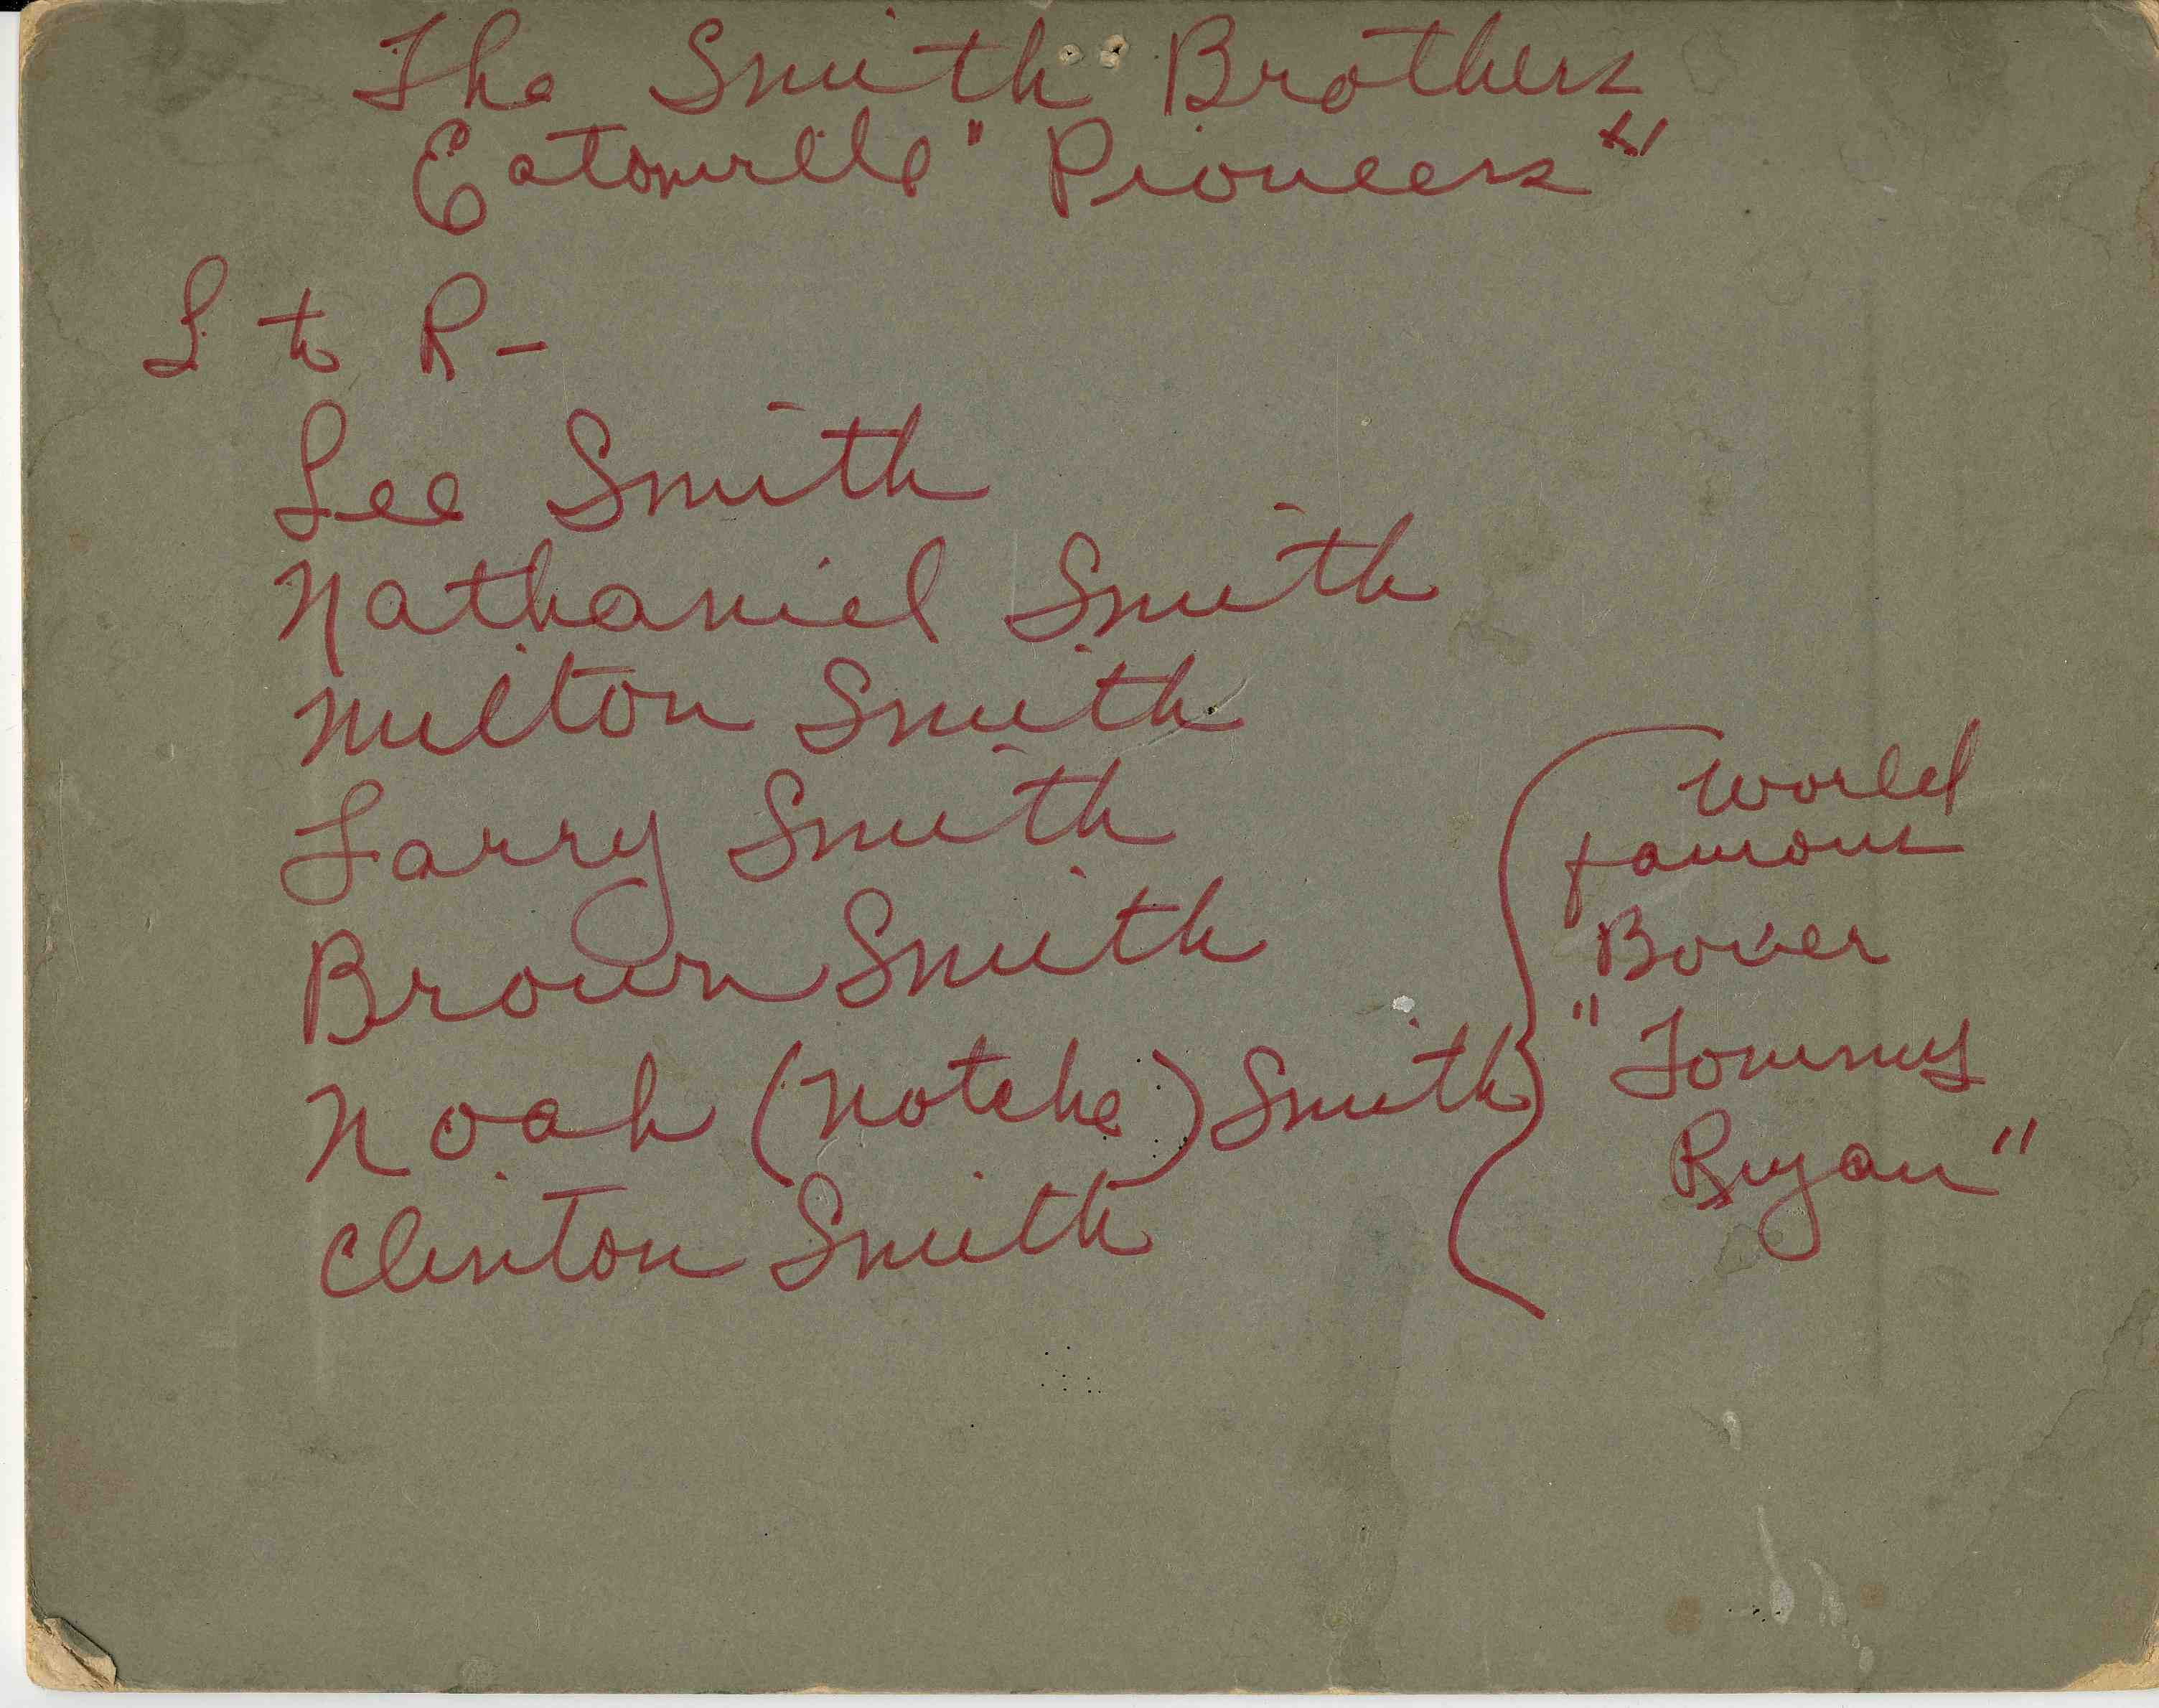 The Smith Brothers
Eatonville "Pioneers"
L to R -
Lee Smith
Nathaniel Smith
Milton Smith
Larry Smith
Brown Smith
Noah (Notche) Smith
Clinton Smith
World
famous
Boxer
"Tommy
Ryan"